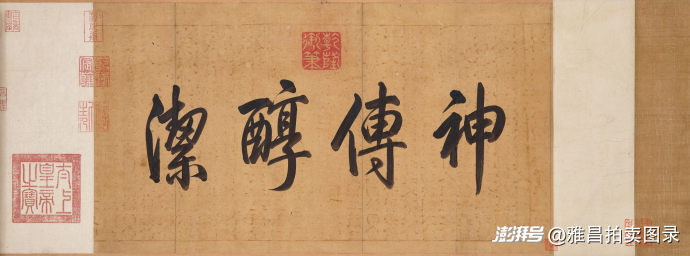 神傳醇潔
乾隆御筆
太上皇帝之寶
澎湃号@雅昌拍卖图录